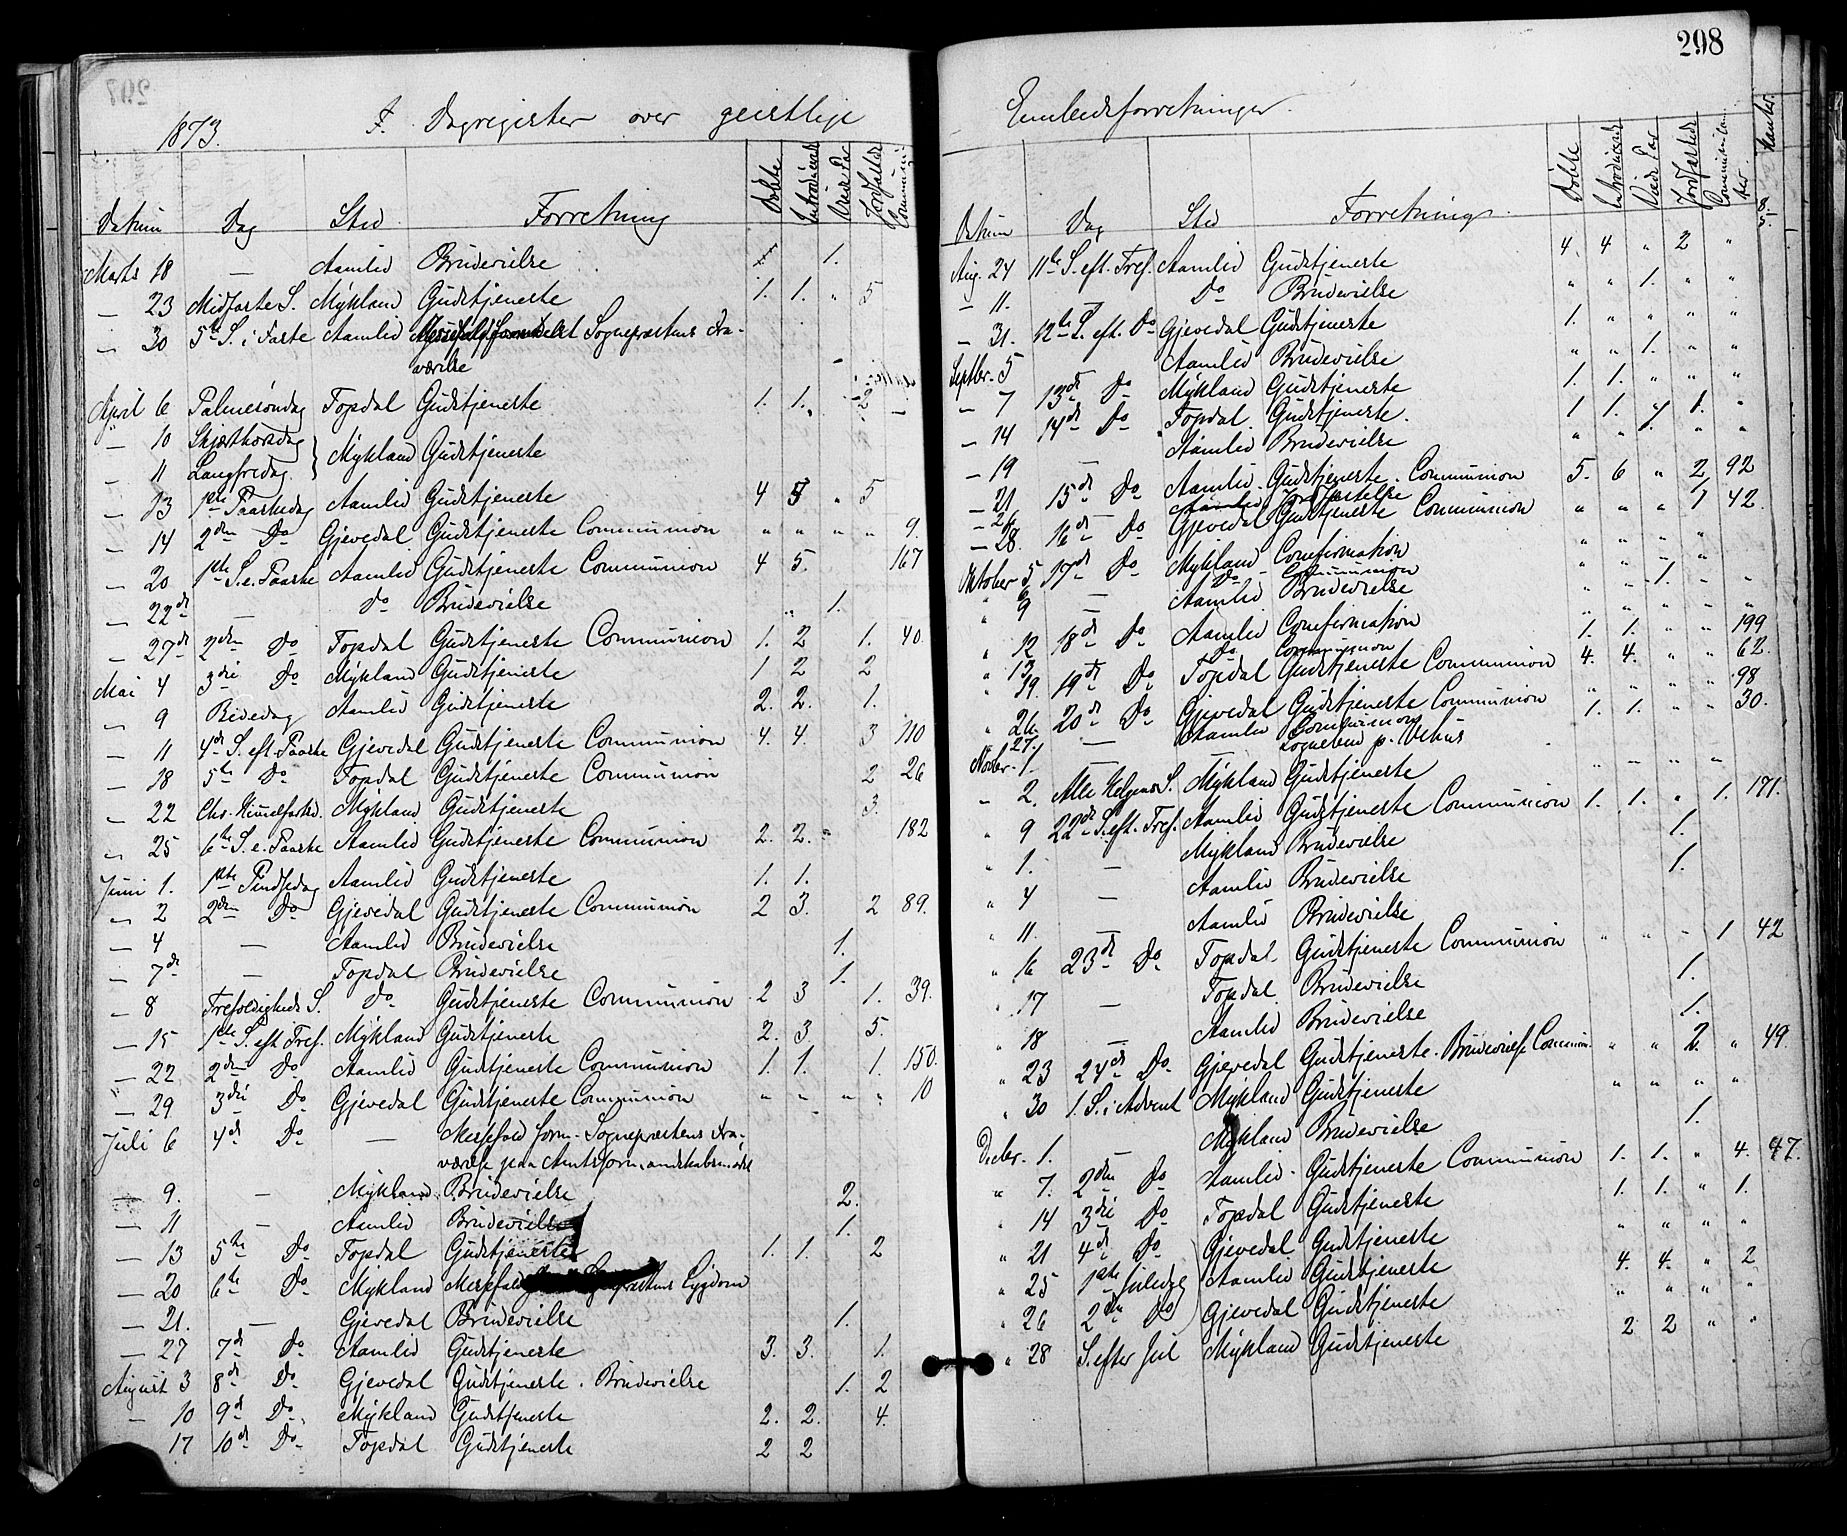 298
1873. F. Dagregister over geistlige
Datum Dag Sted Forretning Døbte Introducerede Viede Par Jordfæstede Communi
Marts 18 — Aamlid Brudevielse 1.
— 23 Midfaste S. Mykland Gudstjeneste 1. 1. " 5
— 30 5te S. i Faste Aamlid Sognepræstens Fra-
værelse
April 6 Palmesøndag Topdal Gudstjeneste 1. 1. " 2 —
— 10 Skjærthorsdag
— 11 Langfredag } Mykland Gudstjeneste
— 13 1ste Paaskedag Aamlid Gudstjeneste 4 5 " 5
— 14 2den Do Gjevedal Gudstjeneste Communion " " " " 9.
— 20 1ste S. e. Paaske Aamlid Gudstjeneste Communion 4 5. 167
— 22de — Do Brudevielse " 1.
— 27de 2den Do Topdal Gudstjeneste Communion 1. 2 1. 40.
Mai 4 3die Do Mykland Gudstjeneste 1 2 2
— 9 Bededag Aamlid Gudstjeneste 2. 2. 1.
— 11 4de S. eft. Paaske Gjevedal Gudstjeneste Communion 4. 4. 3 110
— 18 5te Do Topdal Gudstjeneste Communion 2 26
— 22 Chr. Himmelfartsd. Mykland Gudstjeneste 3.
— 25 6te S. e. Paaske Aamlid Gudstjeneste Communion 2. 2. " 182
Juni 1. 1ste Pindsedag Aamlid Gudstjeneste 1. 1.
— 2 2den Do Gjevedal Gudstjeneste Communion 2 3. 2 89.
— 4 — Aamlid Brudevielse 1.
— 7de — Topdal Brudevielse 1.
— 8 Trefoldigheds S. Do Gudstjeneste Communion 2 3 1. 39.
— 15 1ste S. eft Tref. Mykland Gudstjeneste 2. 3. 5.
— 22 2den Do Aamlid Gudstjeneste Communion 1. 1. 1. 150.
— 29 3die Do Gjevedal Gudstjeneste Communion " " " " 10
Juli 6 4de Do — Messefald form. Sognepræstens Fra-
værelse paa Amtsformandskabsmødet
— 9. — Mykland Brudevielse 2.
— 11 — Aamlid Brudevielse 1.
— 13 5te Do Topdal Gudstjeneste 1. 1. 2
— 20 6te Do Mykland Messefald Sygdom
— 21. — Gjevedal Brudevielse 1.
— 27 7de Do Aamlid Gudstjeneste 3. 3. 1.
August 3 8de Do Gjevedal Gudstjeneste. Brudevielse 1. 2
— 10 9de Do Mykland Gudstjeneste 2. 2. 4.
17 10de Do Topdal Gudstjeneste 2 2
Embedsforretninger.
Datum Dag Sted Forretning. Døbte Introducerede Viede Par Jordfæstede Communikan
ter
Aug. 24 11te S. eft. Tref. Aamlid Gudstjeneste 4. 4 " 2 "
— 11. — Do Brudevielse " " 1. " "
— 31. 12te S. eft. Do Gjevedal Gudstjeneste 1. " " " "
Septbr. 5 Aamlid Brudevielse " " 1. " "
— 7 13de Do Mykland Gudstjeneste 1. 1. " " "
— 14 14de Do Topdal. Gudstjeneste. 1 1. " 1. "
— 19 — Aamlid Brudevielse " " 1. " "
— 21 15de Do Aamlid. Gudstjeneste. Communion 5. 6 " 2 92
— 26 — Aamlid Jordfæstelse
— 28. 16de Do Gjevedal Gudstjeneste Communion " " " 1 42.
Oktober 5 17de Do Mykland Confirmation " " " "
" 6 Do Communion
" 9 — Aamlid Brudevielse " " 1. "
" 12 18de Do Aamlid Confirmation " " " " "
" 13 Do Communion 1. 1. " " 199
" 19. 19de Do Topdal Gudstjeneste Communion 4. 4. " " 62.
" 26. 20de Do Gjevedal Gudstjeneste Communion " " " " 98
" 27. — Aamlid Communion 1. 1. " " 30.
Novbr. 1. — Sognebud p. Vehus
— 2. Alle Helgens S. Mykland Gudstjeneste " " " " "
" 9 22de S. eft. Tref. Aamlid Gudstjeneste Communion 1. 1. " 1. 171.
" 1. — Mykland Brudevielse 1.
" 4 — Aamlid Brudevielse 1.
" 11. — Aamlid Brudevielse
" 16 23de Do Topdal Gudstjeneste Communion " " " 1 42
" 17 — Topdal Brudevielse 1.
" 18 — Aamlid Brudevielse 1.
" 23 24de Do Gjevedal Gudstjeneste. Brudevielse Commun. " " 2. " 49.
" 30 1. S. i Advent Mykland Gudstjeneste " " " "
Decbr. 1. — Mykland Brudevielse 1.
" 7. 2den Do Aamlid Gudstjeneste Communion 1. 1. " 4. 47.
" 14 3die Do Topdal Gudstjeneste 1. 1. " 1.
" 21 4de Do Gjevedal Gudstjeneste " " " "
" 25 1ste Juledag Aamlid Gudstjeneste 4. 4. " 2
" 26 2den Do Gjevedal Gudstjeneste " " " "
" 28 S. efter Jul Mykland Gudstjeneste 2 2 " "